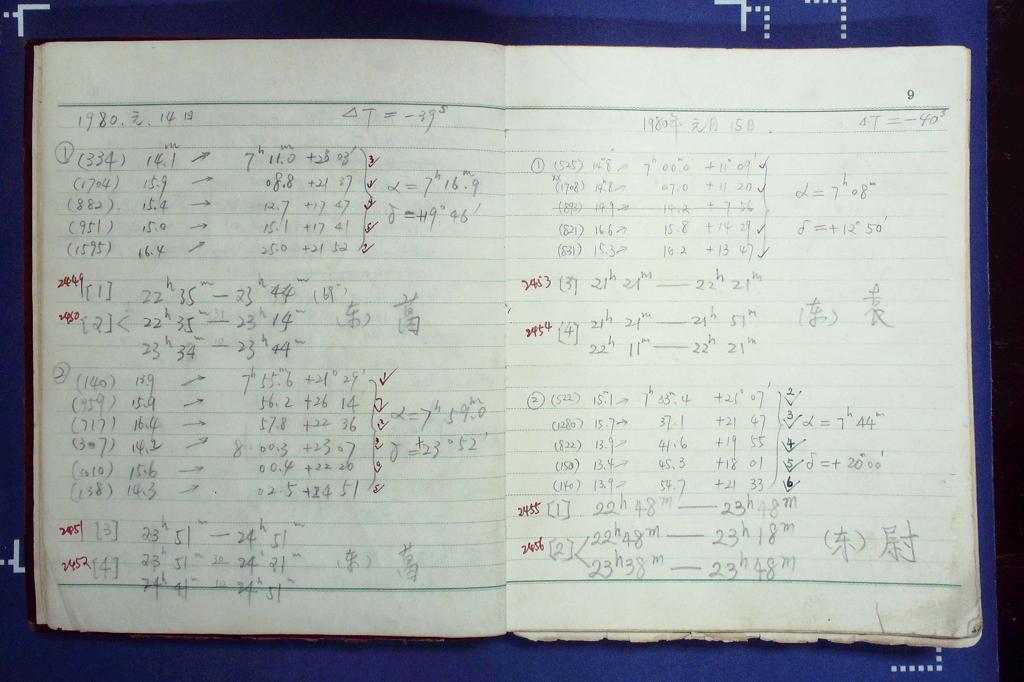 1980.元.14日 △T=-39ˢ
① (334) 14.1 → 7ʰ11ᵐ.0 +28°03′
(1704) 15.9 → 08.8 +21 37
(882) 15.4 → 12.7 +17 47
(951) 15.0 → 15.1 +17 41
(1595) 16.4 → 25.0 +21 52
α=7ʰ16ᵐ.9
δ=+19°46′
2449 [1] 22ʰ35ᵐ—23ʰ44ᵐ
2450 [2]< 22ʰ35ᵐ—23ʰ14ᵐ (东)
23ʰ34ᵐ—23ʰ44ᵐ
② (140) 13.9 → 7ʰ55ᵐ.6 +21°29′
(959) 15.9 → 56.2 +26 14
(717) 16.4 → 57.8 +22 36
(307) 14.2 → 8 00.3 +23 07
(1010) 15.6 → 00.4 +22 20
(138) 14.3 → 02.5 +24 51
α=7ʰ59ᵐ.0
δ=+23°52′
2451 [3] 23ʰ51ᵐ—24ʰ51ᵐ
2452 [4] 23ʰ51ᵐ—24ʰ21ᵐ (东)
24ʰ41ᵐ—24ʰ51ᵐ
9
1980年元月15日 △T=-40ˢ
① (525) 14.8 → 7ʰ00ᵐ.0 +11°09′
(1708) 14.8 → 07.0 +11 20
(893) 14.9 → 14.2 +7 56
(821) 16.6 → 15.8 +14 29
(831) 15.3 → 16.2 +13 47
α=7ʰ08ᵐ
δ=+12°50′
2453 [3] 21ʰ21ᵐ—22ʰ21ᵐ
(东) 袁
2454 [4] 21ʰ21ᵐ—21ʰ51ᵐ
22ʰ11ᵐ—22ʰ21ᵐ
② (522) 15.1 → 7ʰ35ᵐ.4 +21°07′ 2
(1280) 15.7 → 37.1 +21 47 3
(822) 13.9 → 41.6 +19 55 4
(150) 13.4 → 45.3 +18 01 5
(140) 13.9 → 54.7 +21 33 6
α=7ʰ44ᵐ
δ=+20°00′
2455 [1] 22ʰ48ᵐ—23ʰ48ᵐ
2456 [2]< 22ʰ48ᵐ—23ʰ18ᵐ (东) 尉
23ʰ38ᵐ—23ʰ48ᵐ